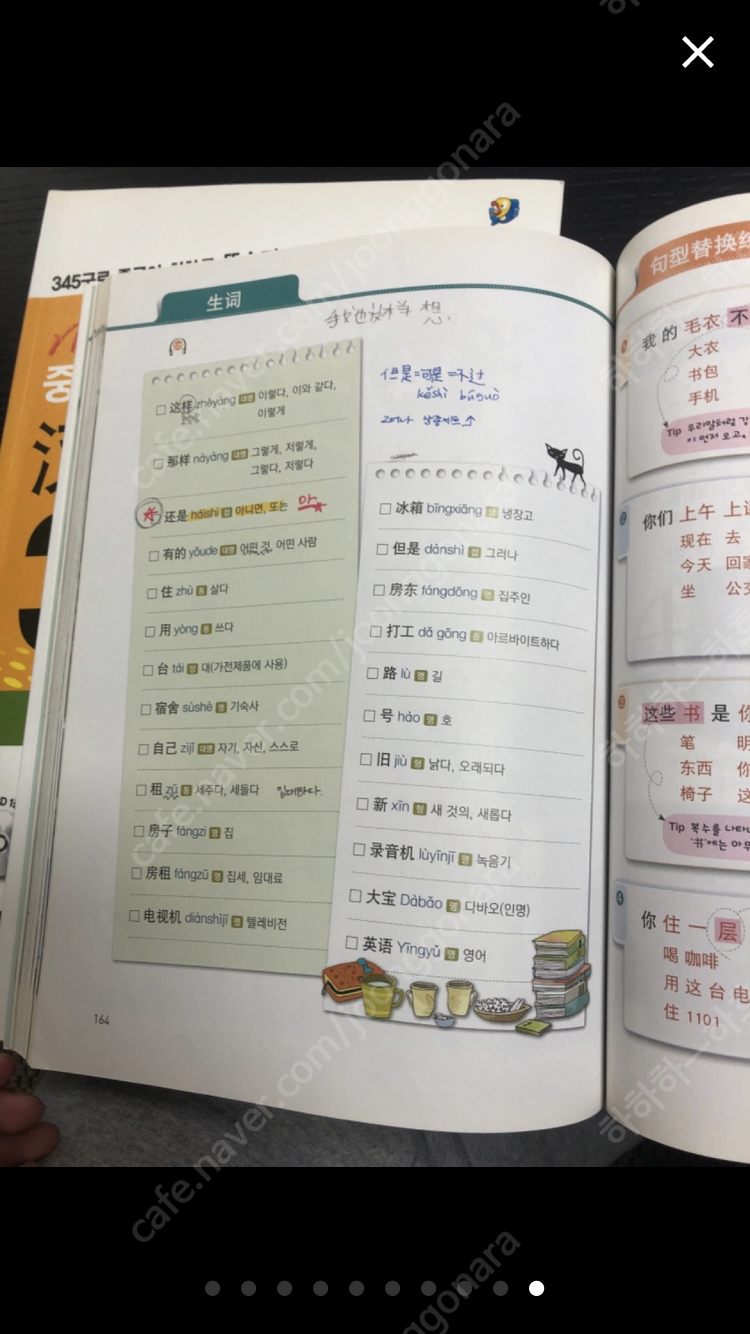 生词
但是=可是=不过
kěshì búguò
그러나
这样 zhèyàng 대명 이렇다, 이와 같다,
이렇게
那样 nàyàng 대명 그렇게, 저렇게,
그렇다, 저렇다
还是 háishi 접 아니면, 또는
有的 yǒude 대명 어떤 것, 어떤 사람
住 zhù 동 살다
用 yòng 동 쓰다
台 tái 양 대(가전제품에 사용)
宿舍 sùshè 명 기숙사
自己 zìjǐ 대명 자기, 자신, 스스로
租 zū 동 세주다, 세들다 임대하다.
房子 fángzi 명 집
房租 fángzū 명 집세, 임대료
电视机 diànshìjī 명 텔레비전
冰箱 bīngxiāng 명 냉장고
但是 dànshì 접 그러나
房东 fángdōng 명 집주인
打工 dǎ gōng 동 아르바이트하다
路 lù 명 길
号 hào 명 호
旧 jiù 형 낡다, 오래되다
新 xīn 형 새 것의, 새롭다
录音机 lùyīnjī 명 녹음기
大宝 Dàbǎo 명 다바오(인명)
英语 Yīngyǔ 명 영어
164
句型替换练
我 的 毛衣 不
大衣
书包
手机
Tip 우리말처럼
이 먼저 오고,
你们 上午 上
现在 去
今天 回家
坐 公交
这些 书 是 你
笔 明
东西 你
椅子 这
Tip 복수를 나타
'书'에는 아무
你 住 一 层
喝 咖啡
用 这 台 电
住 1101
345
cafe.naver.com/joonggonara